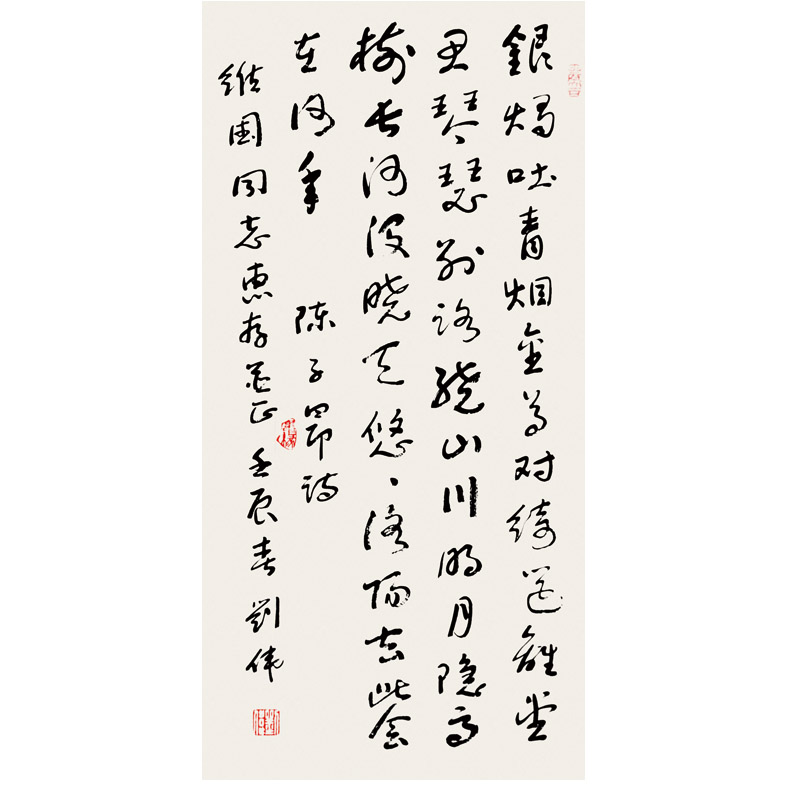 銀燭吐青烟金尊对綺筵離堂
思琴瑟别路繞山川明月隐高
樹长河没晓天悠〻洛阳去此会
在何年 陈子昂诗
维国同志惠存并正 壬辰春 劉偉